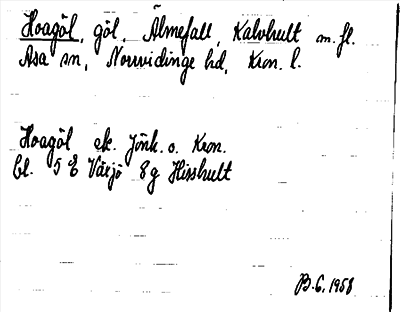 Hoagöl, göl, Älmefall, Kalvhult m. fl.
Asa sn, Norrvidinge hd, Kron. l.
Hoagöl ek. Jönk. o. Kron.
bl. 5 E Växjö 8 g Hisshult
B.G. 1958